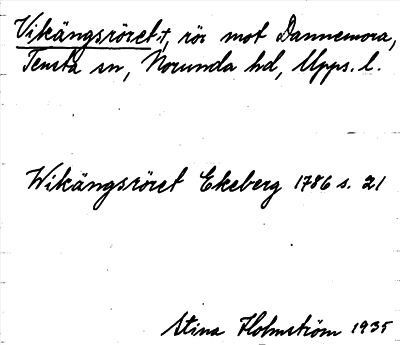 Vikängsröret †, rös mot Dannemora,
Tensta sn, Norunda hd, Upps. l.
Wikängsröret Ekeberg 1786 s. 21
Stina Holmström 1935